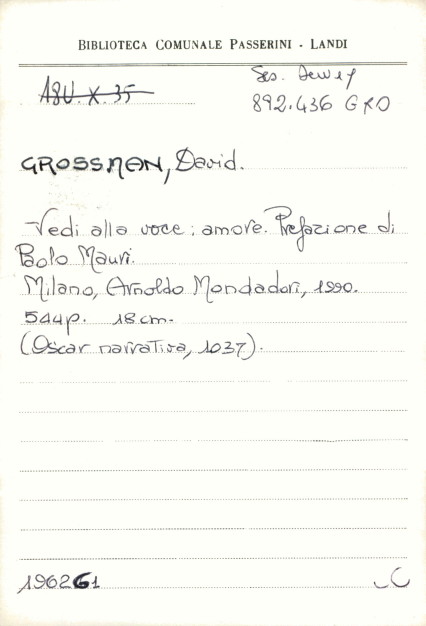 BIBLIOTECA COMUNALE PASSERINI - LANDI
A8U. X. 35
Ses. Dewey
892.436 GRO
GROSSMAN, David.
Vedi alla voce: amore. Prefazione di
Paolo Mauri.
Milano, Arnoldo Mondadori, 1990.
544p. 18 cm.
(Oscar narrativa, 1037).
196261